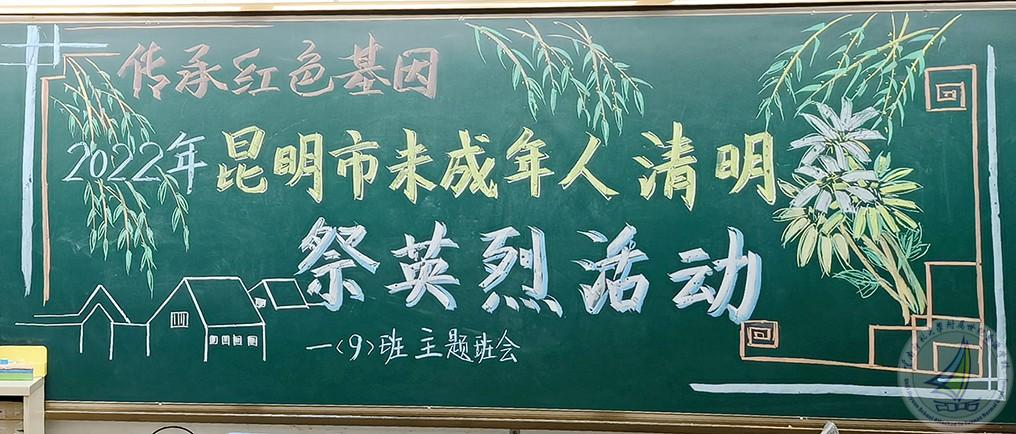 传承红色基因
2022年昆明市未成年人清明
祭英烈活动
一〈9〉班主题班会